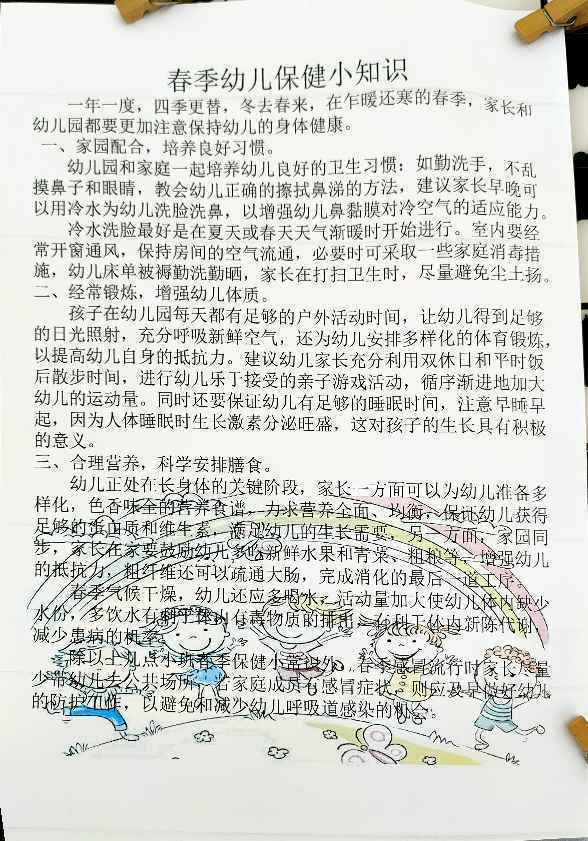 春季幼儿保健小知识
一年一度，四季更替，冬去春来，在乍暖还寒的春季，家长和
幼儿园都要更加注意保持幼儿的身体健康。
一、家园配合，培养良好习惯。
幼儿园和家庭一起培养幼儿良好的卫生习惯：如勤洗手，不乱
摸鼻子和眼睛，教会幼儿正确的擦拭鼻涕的方法，建议家长早晚可
以用冷水为幼儿洗脸洗鼻，以增强幼儿鼻黏膜对冷空气的适应能力。
冷水洗脸最好是在夏天或春天天气渐暖时开始进行。室内要经
常开窗通风，保持房间的空气流通，必要时可采取一些家庭消毒措
施，幼儿床单被褥勤洗勤晒，家长在打扫卫生时，尽量避免尘土扬。
二、经常锻炼，增强幼儿体质。
孩子在幼儿园每天都有足够的户外活动时间，让幼儿得到足够
的日光照射，充分呼吸新鲜空气，还为幼儿安排多样化的体育锻炼，
以提高幼儿自身的抵抗力。建议幼儿家长充分利用双休日和平时饭
后散步时间，进行幼儿乐于接受的亲子游戏活动，循序渐进地加大
幼儿的运动量。同时还要保证幼儿有足够的睡眠时间，注意早睡早
起，因为人体睡眠时生长激素分泌旺盛，这对孩子的生长具有积极
的意义。
三、合理营养，科学安排膳食。
幼儿正处在长身体的关键阶段，家长一方面可以为幼儿准备多
样化，色香味全的营养食谱，力求营养全面、均衡，保证幼儿获得
足够的蛋白质和维生素，满足幼儿的生长需要，另一方面，家园同
步，家长在家要鼓励幼儿多吃新鲜水果和青菜，粗粮等，增强幼儿
的抵抗力，粗纤维还可以疏通大肠，完成消化的最后一道工序。
春季气候干燥，幼儿还应多喝水，活动量加大使幼儿体内缺少
水份，多饮水有利于体内有毒物质的排出，有利于体内新陈代谢，
减少患病的机率。
除以上几点小班春季保健小常识外，春季感冒流行时家长尽量
少带幼儿去公共场所，若家庭成员有感冒症状，则应及早做好幼儿
的防护工作，以避免和减少幼儿呼吸道感染的机会。